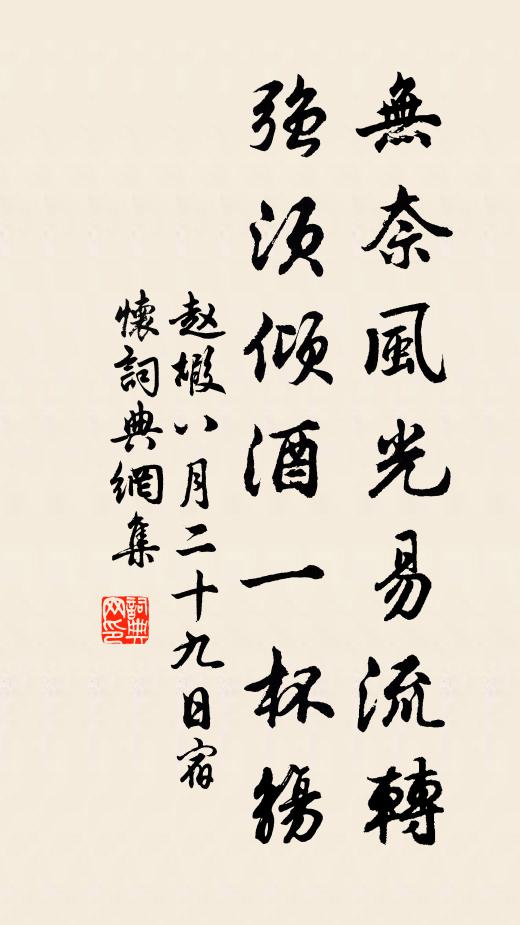 無奈風光易流轉
強須傾酒一杯觴
赵嘏八月二十九日宿
懷詞典網集
詞典网印